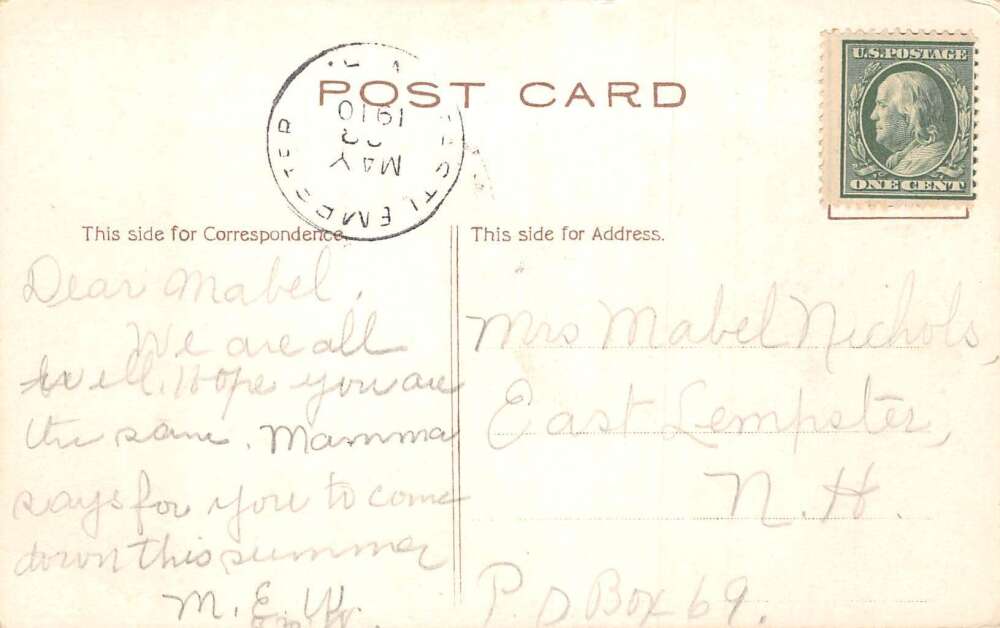 POST CARD
U.S. POSTAGE
ONE CENT
EAST LEMPSTER
MAY
1910
This side for Correspondence.
This side for Address.
Dear Mabel,
We are all
well. Hope you are
the same. Mamma
says for you to come
down this summer
M. E. W.
Mrs Mabel Nichols,
East Lempster,
N. H.
P O Box 69.